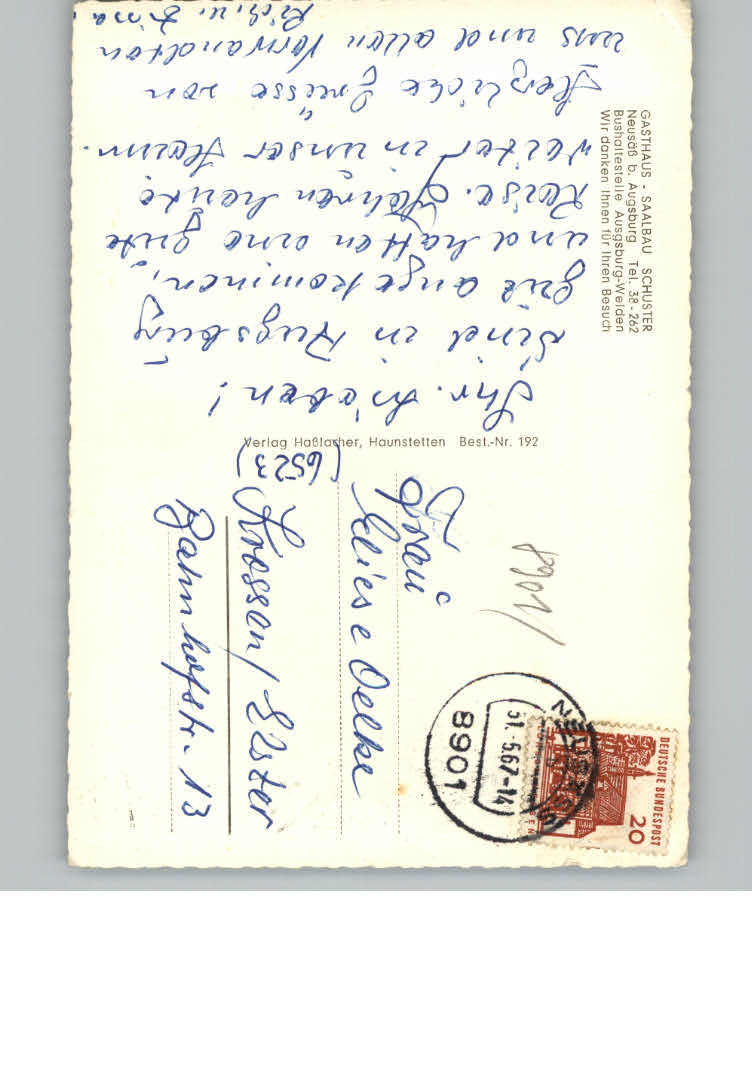 GASTHAUS - SAALBAU SCHUSTER
Neusäß b. Augsburg Tel. 38-262
Bushaltestelle Augsburg-Westen
Wir danken Ihnen für Ihren Besuch
Ihr Lieben!
Sind in Augsburg
gut angekommen,
und hatten eine gute
Reise. Fahren heute
weiter in unser Heim.
Herzliche Grüsse von
uns und allen Verwandten
Rich. u.
Verlag Haßlacher, Haunstetten Best.-Nr. 192
8901
Frau
Eliese Oelke
(6523)
Krossen/Elster
Bahnhofstr. 13
DEUTSCHE BUNDESPOST
20
NEUSÄSS
31.-5.67-14
8901